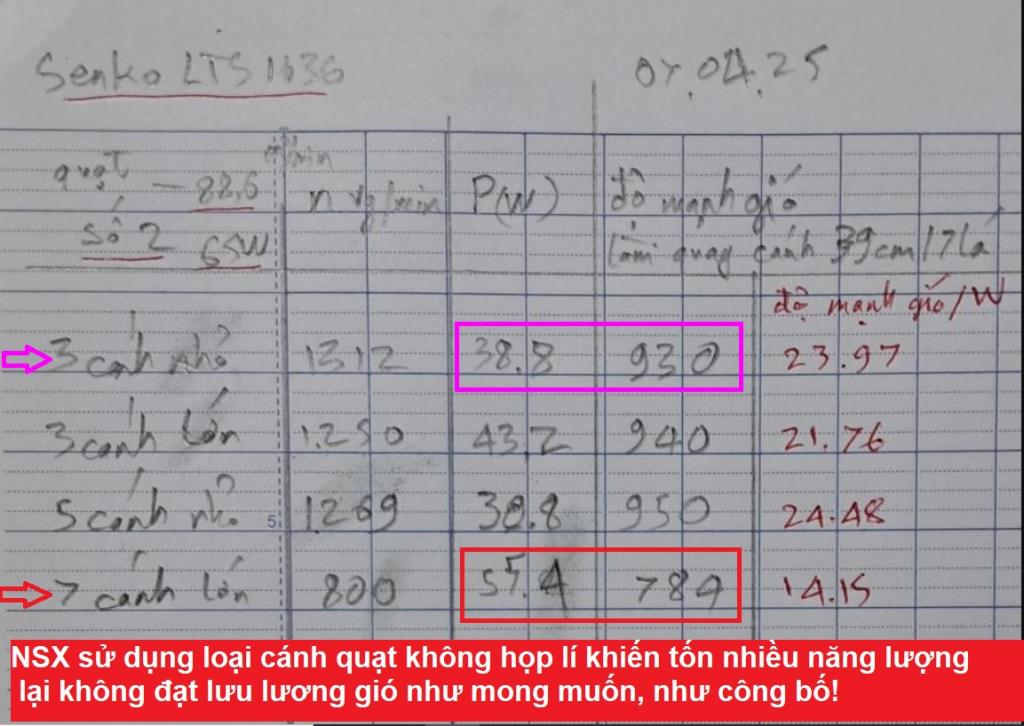 Senko LTS 1636 07.04.25
quạt — 88.6 m³/min n vg/min P(W) độ mạnh gió
số 2 65W làm quay cánh 39cm/7 lá
độ mạnh gió/W
3 cánh nhỏ 1312 38.8 930 23.97
3 cánh lớn 1.250 43.2 940 21.76
5 cánh nhỏ 1.269 38.8 950 24.48
7 cánh lớn 800 55.4 784 14.15
NSX sử dụng loại cánh quạt không họp lí khiến tốn nhiều năng lượng
lại không đạt lưu lương gió như mong muốn, như công bố!